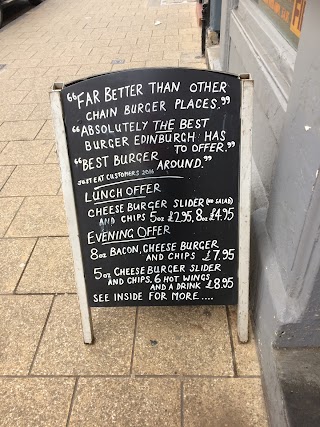 "FAR BETTER THAN OTHER
CHAIN BURGER PLACES."
"ABSOLUTELY THE BEST
BURGER EDINBURGH HAS
TO OFFER."
"BEST BURGER
AROUND."
JUST EAT CUSTOMERS 2016
LUNCH OFFER
CHEESE BURGER SLIDER (NO SALAD)
AND CHIPS 5oz £2.95, 8oz £4.95
EVENING OFFER
8oz BACON, CHEESE BURGER
AND CHIPS £7.95
5oz CHEESEBURGER SLIDER
AND CHIPS, 6 HOT WINGS
AND A DRINK £8.95
SEE INSIDE FOR MORE....